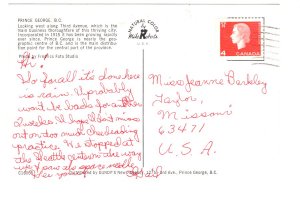 PRINCE GEORGE, B.C.
Looking west along Third Avenue, which is the
main business thoroughfare of this thriving city.
Incorporated in 1915 it has been growing rapidly
ever since. Prince George is nearly the geo-
graphic centre of B.C. and is the main distribu-
tion point for the central part of the province.
Photo by Francis Foto Studio
NATURAL COLOR
4
CANADA
So far all it's done here
is rain. I'll probably
won't be back for another
I hope I don't miss
out on too much cheerleading
practice. We stopped at
the Seattle center on the way
we saw space needle.
See you
Miss Jeanne Barkley
Taylor,
Missouri
63471
U.S.A.
Distributed by
3rd Ave., Prince George, B.C.